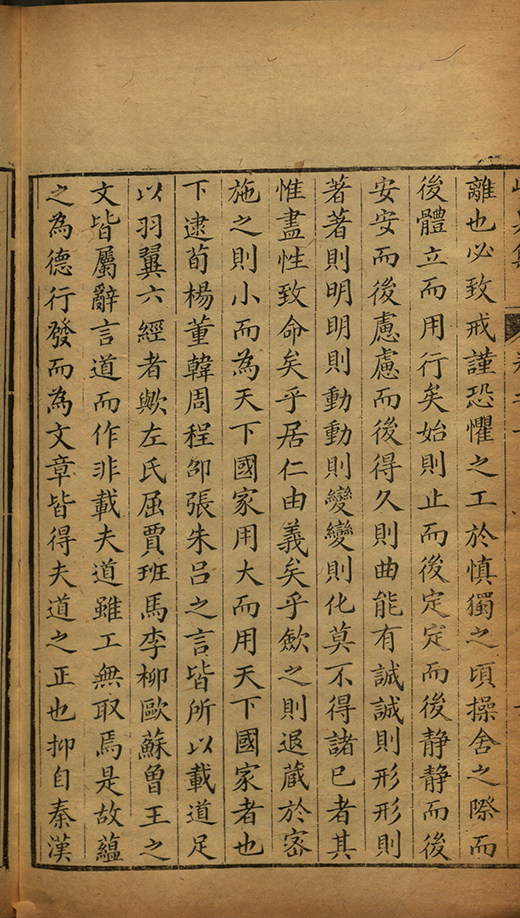 離也必致戒謹恐懼之工於慎獨之頃操舍之際而
後體立而用行矣始則止而後定定而後静静而後
安安而後慮慮而後得久則曲能有誠誠則形形則
著著則明明則動動則變變則化莫不得諸已者其
惟盡性致命矣乎居仁由義矣乎歛之則退藏於宻
施之則小而為天下國家用大而用天下國家者也
下逮荀楊董韓周程邵張朱吕之言皆所以載道足
以羽翼六經者歟左氏屈賈班馬李柳歐蘇曾王之
文皆屬辭言道而作非載夫道雖工無取焉是故蘊
之為德行發而為文章皆得夫道之正也抑自秦漢